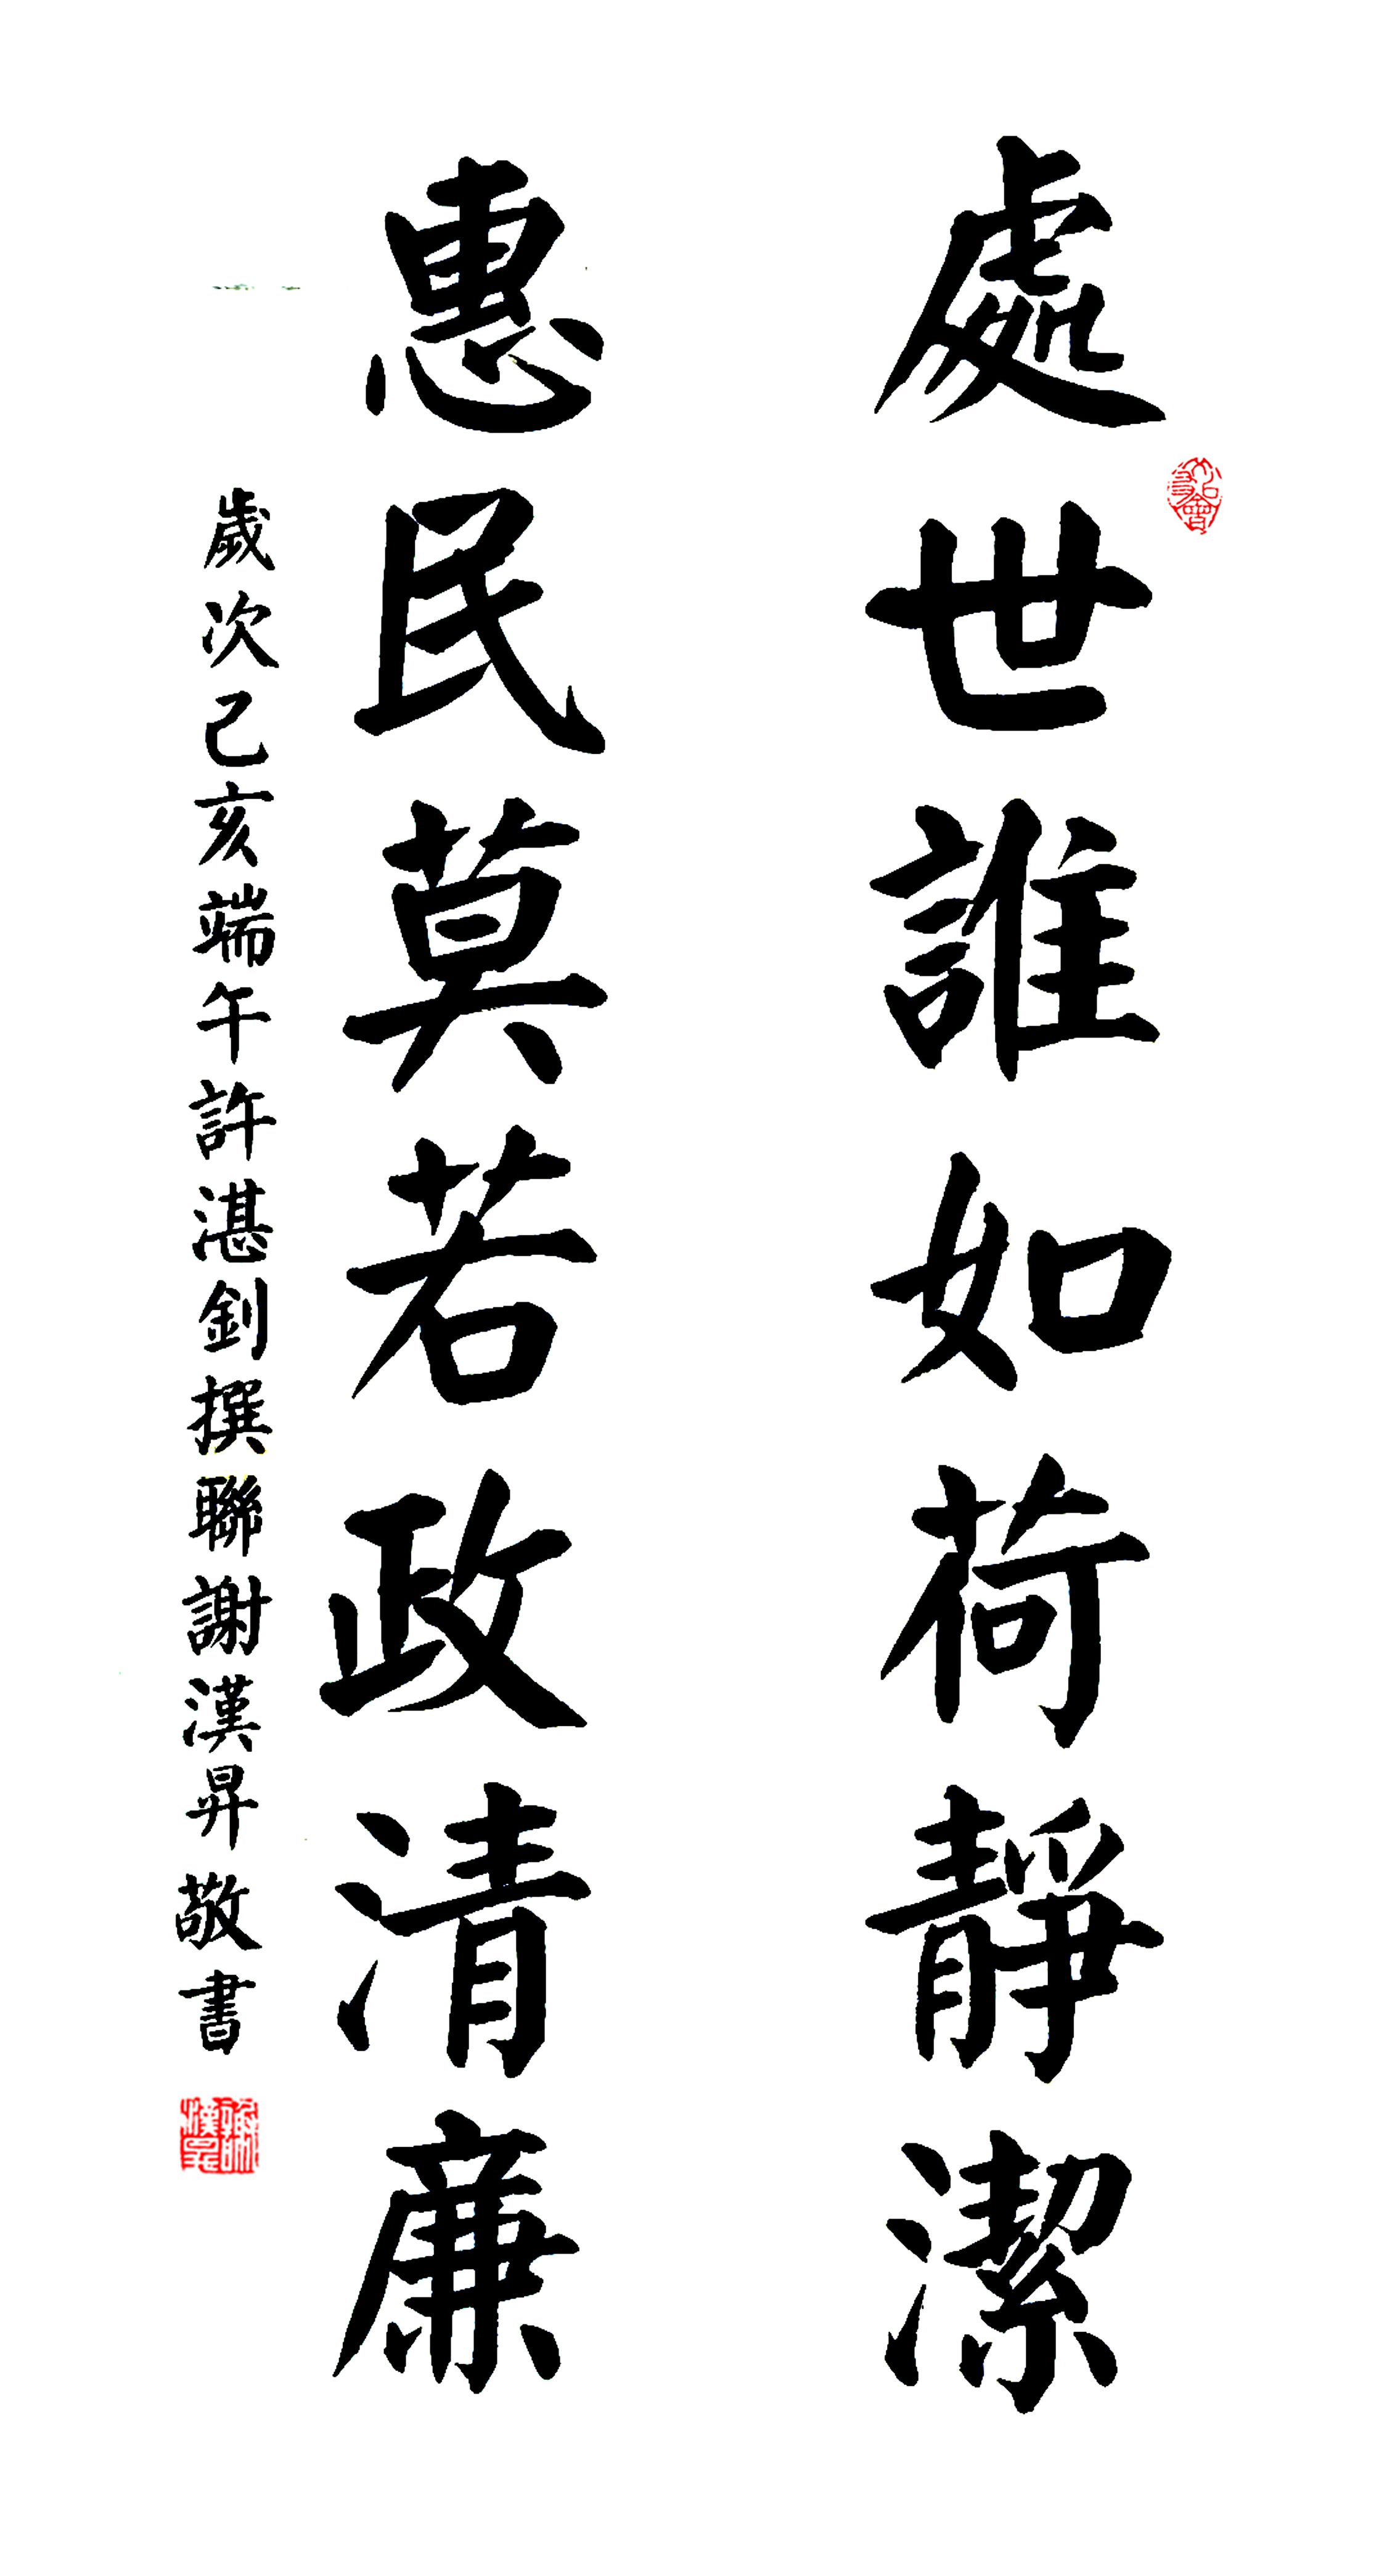 處世誰如荷靜潔
惠民莫若政清廉
歲次己亥端午許湛釗撰聯謝漢昇敬書